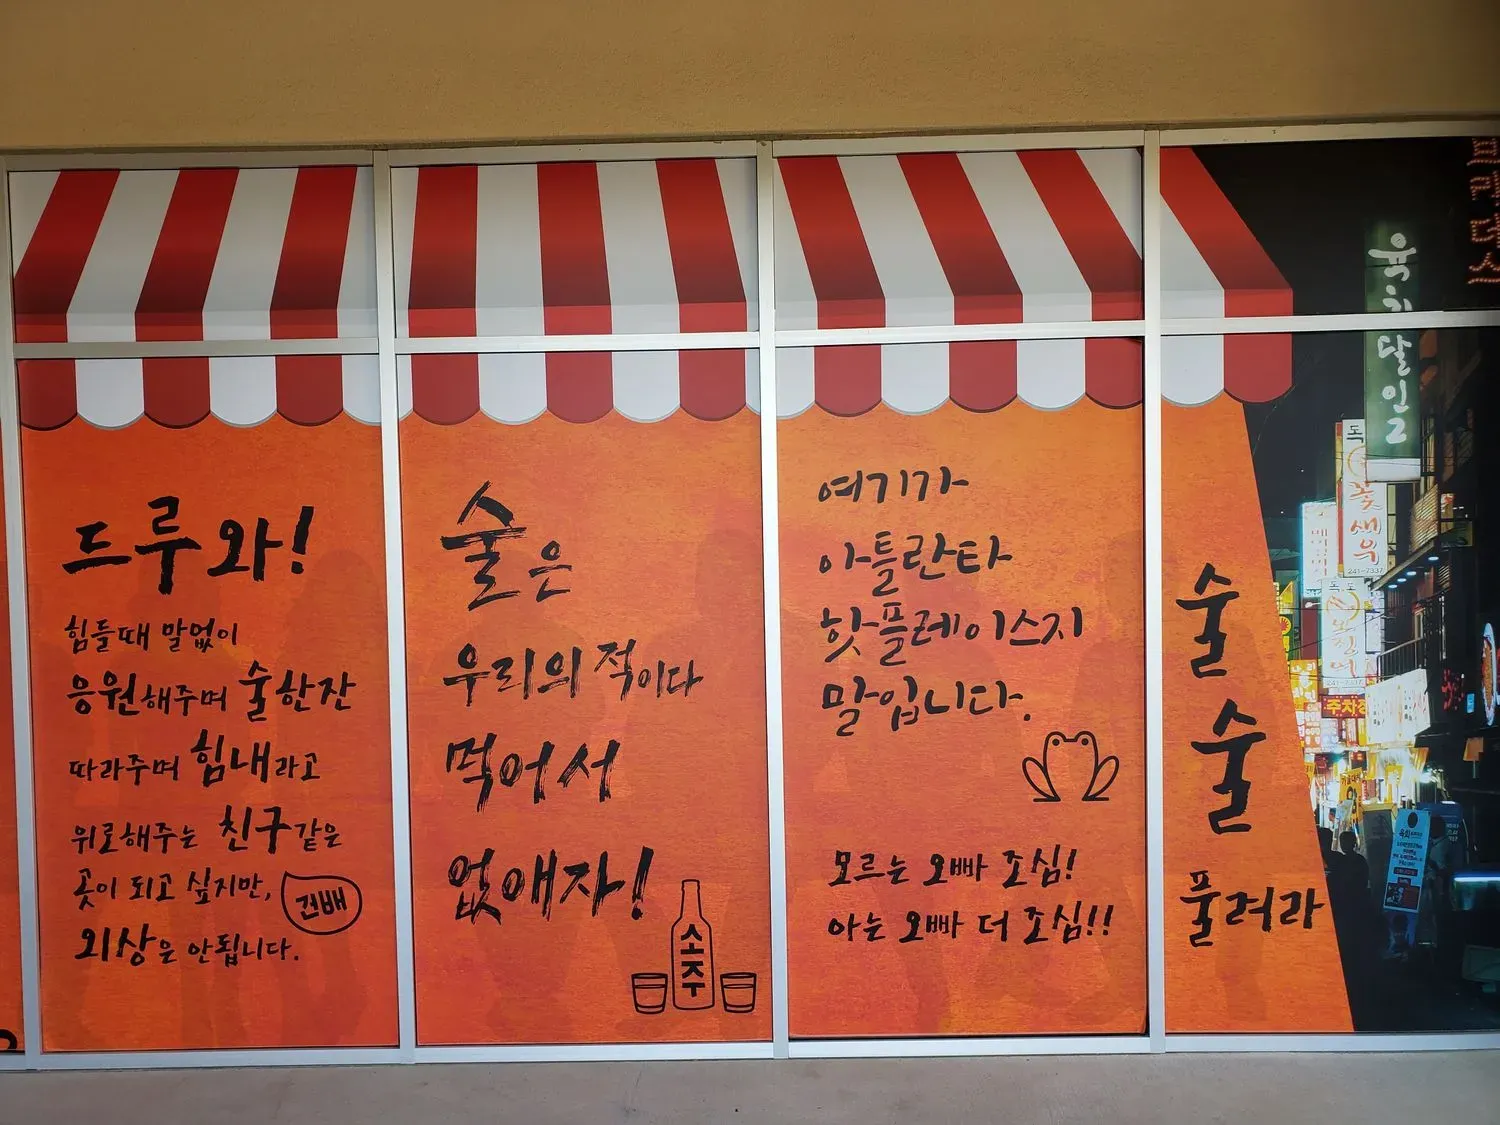 드루와!
힘들때 말없이
응원해주며 술한잔
따라주며 힘내라고
위로해주는 친구같은
곳이 되고 싶지만,
건배
외상은 안됩니다.
술은
우리의 적이다
먹어서
없애자!
소주
여기가
아틀란타
핫플레이스지
말입니다.
모르는 오빠 조심!
아는 오빠 더 조심!!
술
술
풀려라
육회달인2
꽃새우
241-7337
독도
241-7337
주차장